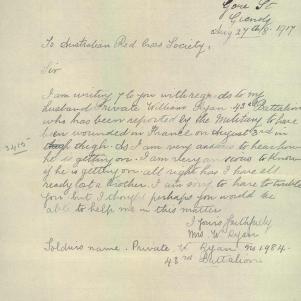 Gore St
Aug 27th 1917
To Australian Red Cross Society,
Sir
I am writing to you with regards to my
husband Private William Ryan 43rd Battalion
who has been reported by the Military to have
been wounded in France on August 3rd in
thigh. As I am very anxious to hear how
3415
he is getting on. I am very anxious to know
if he is getting on all right has I have all
ready lost a Brother. I am sorry to have to trouble
you but I thought perhaps you would be
able to help me in this matter
I Yours Faithfully
Mrs. W. Ryan
Soldiers name. Private W Ryan no 1984
43rd Battalion